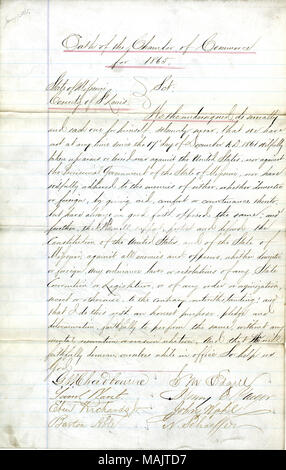 Oath of the Chamber of Commerce
for 1865.
State of Missouri
County of St Louis
Sct.
We the undersigned, do severally
and each one for himself solemnly swear, that we have
not at any time since the 17th day of December A.D. 1861 wilfully
taken up arms or levied war against the United States, nor against
the Provisional Government of the State of Missouri, nor have
wilfully adhered to the enemies of either, whether domestic
or foreign, by giving aid, comfort or countenance thereto,
but have always in good faith opposed the same; and
further, that I will support, protect and defend the
Constitution of the United States and of the State of
Missouri, against all enemies and opposers, whether domestic
or foreign, any ordinance, law or resolution of any State
Convention or Legislature, or of any order or organization,
secret or otherwise, to the contrary notwithstanding; and
that I do this with an honest purpose, pledge and
determination, faithfully to perform the same, without any
mental reservation or evasion whatever. And that I will
faithfully demean ourselves while in office So help us
God.
E. M. Edgell
John Wahl
Barton Able
N. Schaeffer
alamy
Image ID: MAJTD7
www.alamy.com